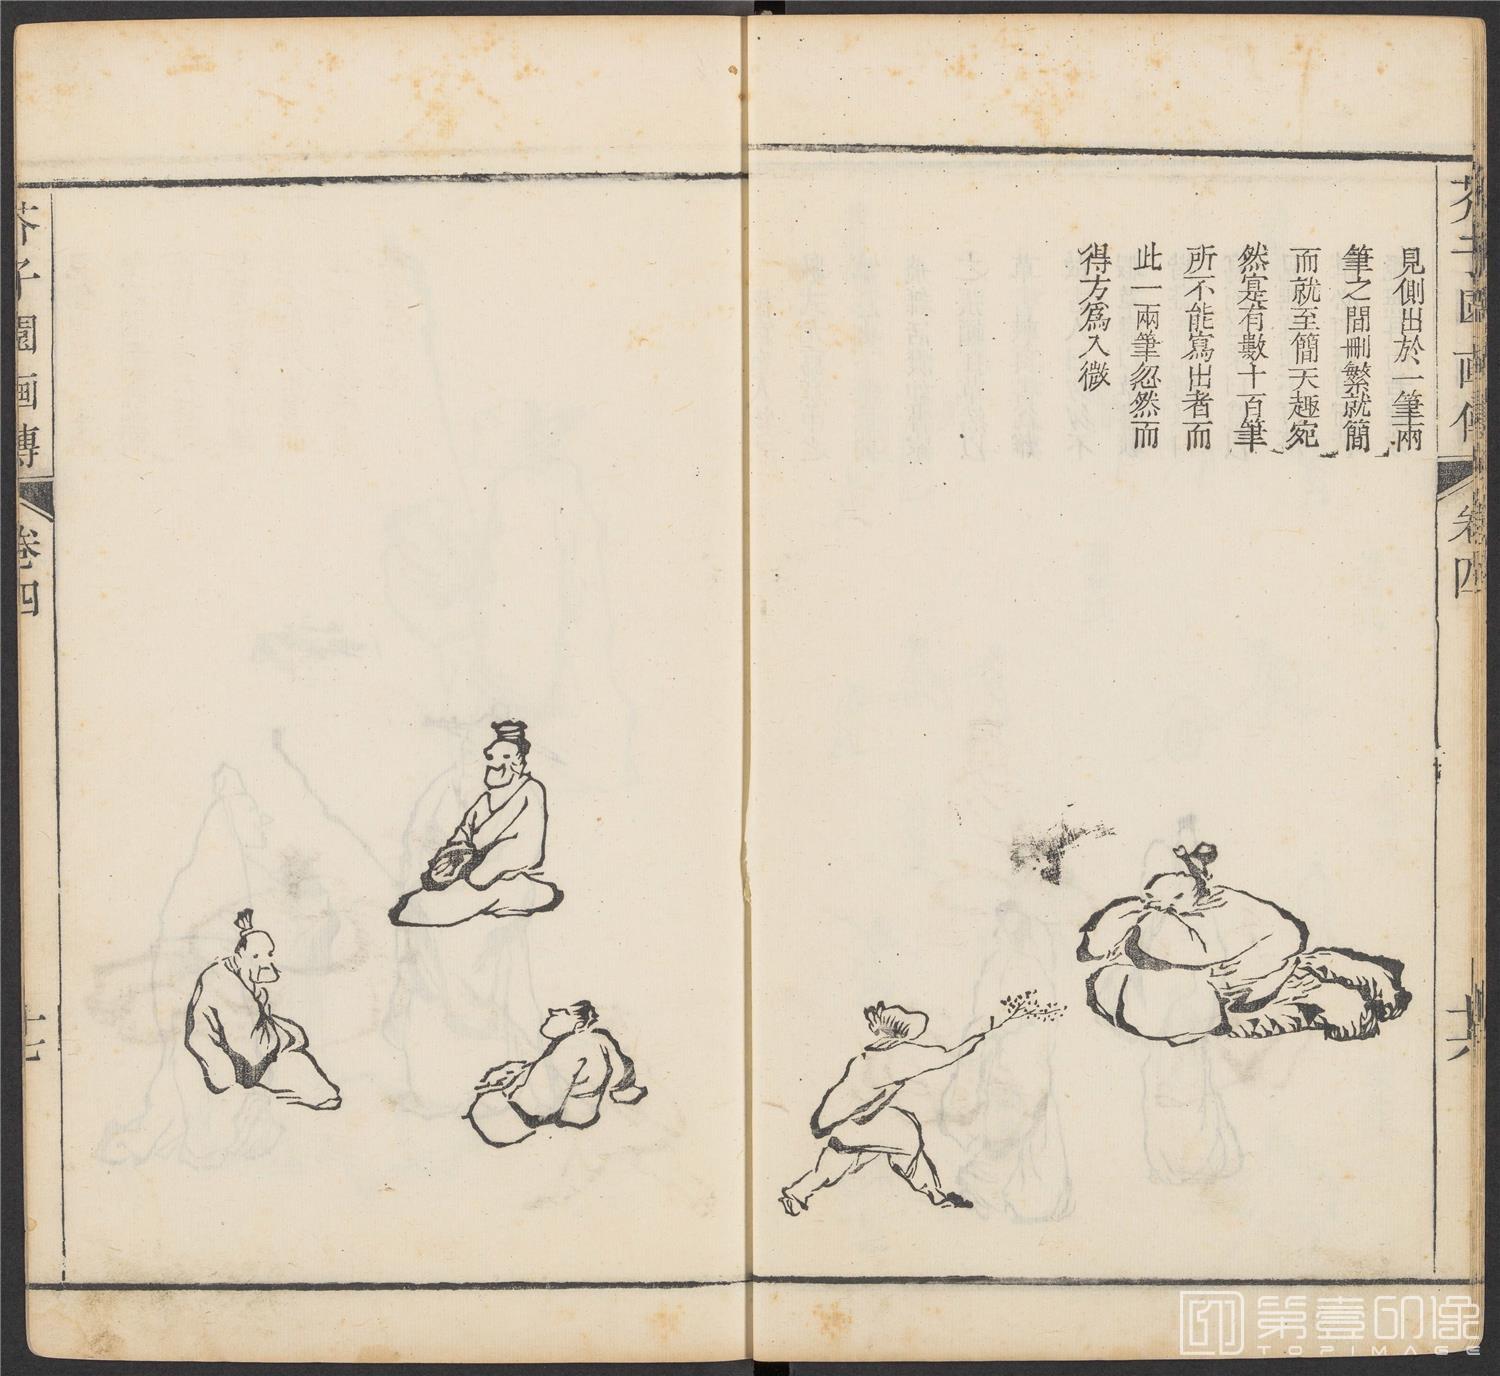 芥子園画傳
卷四
十六
見側出於一筆兩
筆之間刪繁就簡
而就至簡天趣宛
然寔有數十百筆
所不能寫出者而
此一兩筆忽然而
得方爲入微
芥子園画傳
卷四
十七
第壹印像
TOPIMAGE